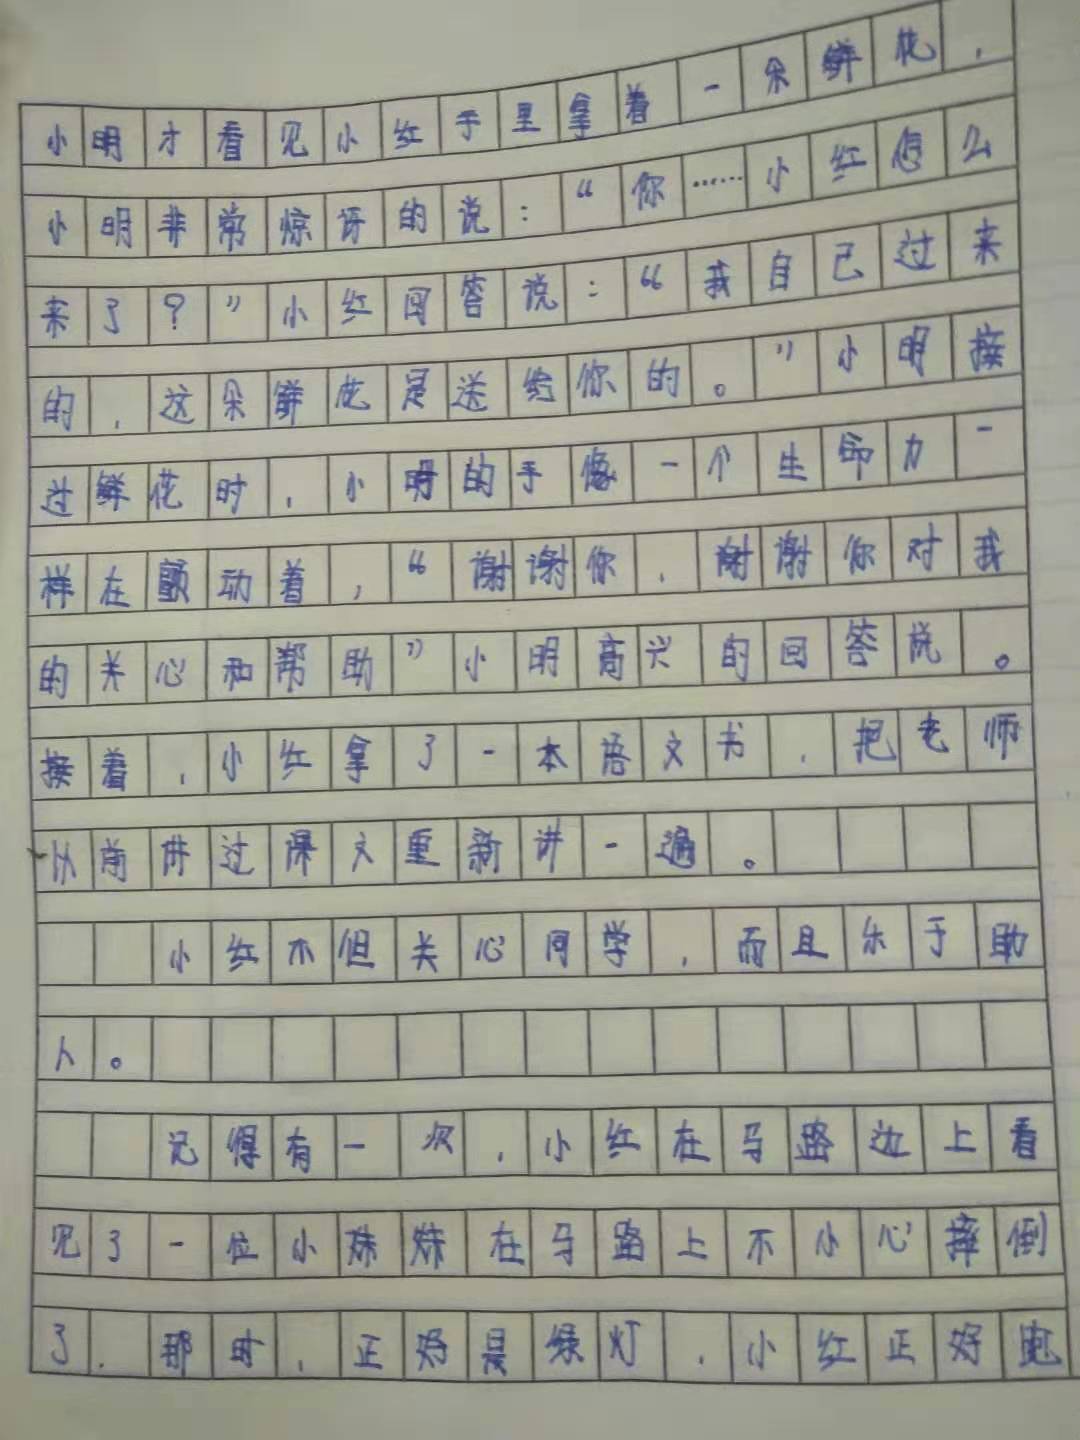 小明才看见小红手里拿着一朵鲜花，
小明非常惊讶的说：“你……小红怎么
来了？”小红回答说：“我自己过来
的，这朵鲜花是送给你的。”小明接
过鲜花时，小明的手像一个生命力一
样在颤动着，“谢谢你，谢谢你对我
的关心和帮助”小明高兴的回答说。
接着，小红拿了一本语文书，把老师
以前讲过课文重新讲一遍。
小红不但关心同学，而且乐于助
人。
记得有一次，小红在马路边上看
见了一位小妹妹在马路上不小心摔倒
了，那时，正好是绿灯，小红正好跑